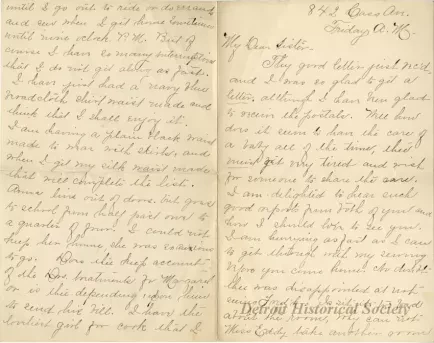 842 Cass Av.
Friday A.M.
My Dear Sister.
Thy good letter just rec'd
and I was so glad to get a
letter, although I have been glad
to receive the postals. Well how
does it seem to have the care of
a baby all of the time, thee
must get very tired and wish
for someone to share the care.
I am delighted to hear such
good reports from both of you and
how I should love to see you.
I am hurrying as fast as I can
to get through with my sewing
before you come home.
thee was disappointed at not
about the room,
Miss Eddy take another room
until I go out to ride or
and sew when I get home
until nine o'clock P.M. But of
course I have so many interruptions
that I do not get along as fast.
I have just had a navy blue
broadcloth shirt waist made and
think that I shall enjoy it.
I am having a plain black
made to wear with skirts, and
when I get my silk waist made
that will complete the list.
Anna live out of doors. but goes
to school from half past one to
a quarter of four. I could not
keep her home, she was so anxious
to go. Does thee keep account
of the Drs. treatments for Margaret
or is thee depending upon him
to send his bill. I have the
loveliest girl for cook that I
Detroit Historical Society